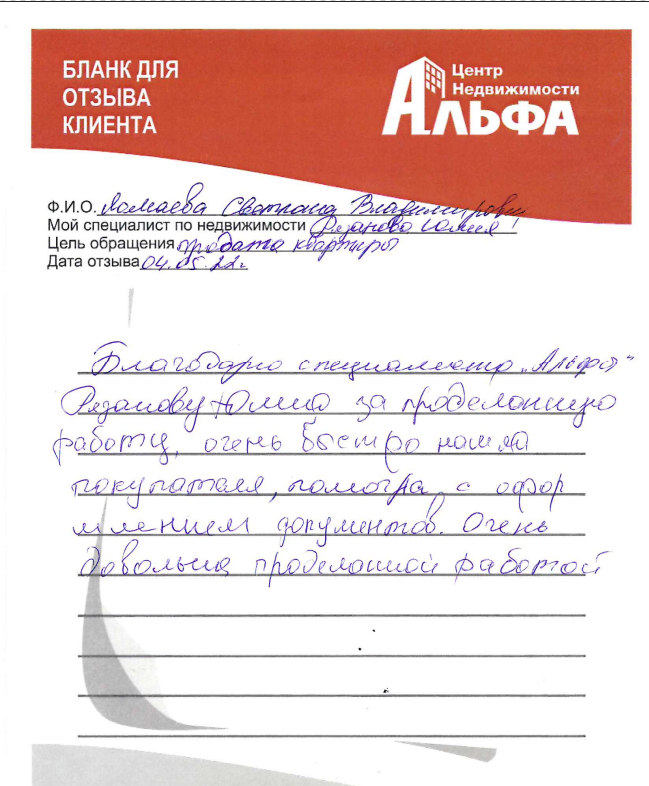 БЛАНК ДЛЯ
ОТЗЫВА
КЛИЕНТА
Центр
Недвижимости
АЛЬФА
Ф.И.О. Ломаева Светлана Владимировна
Мой специалист по недвижимости Рязанова Юлия!
Цель обращения продажа квартиры
Дата отзыва 04.05.22г
Благодарю специалиста „Альфа"
Рязанову Юлию за проделанную
работу, очень быстро нашла
покупателя, помогла с офор
млением документов. Очень
довольна проделанной работой